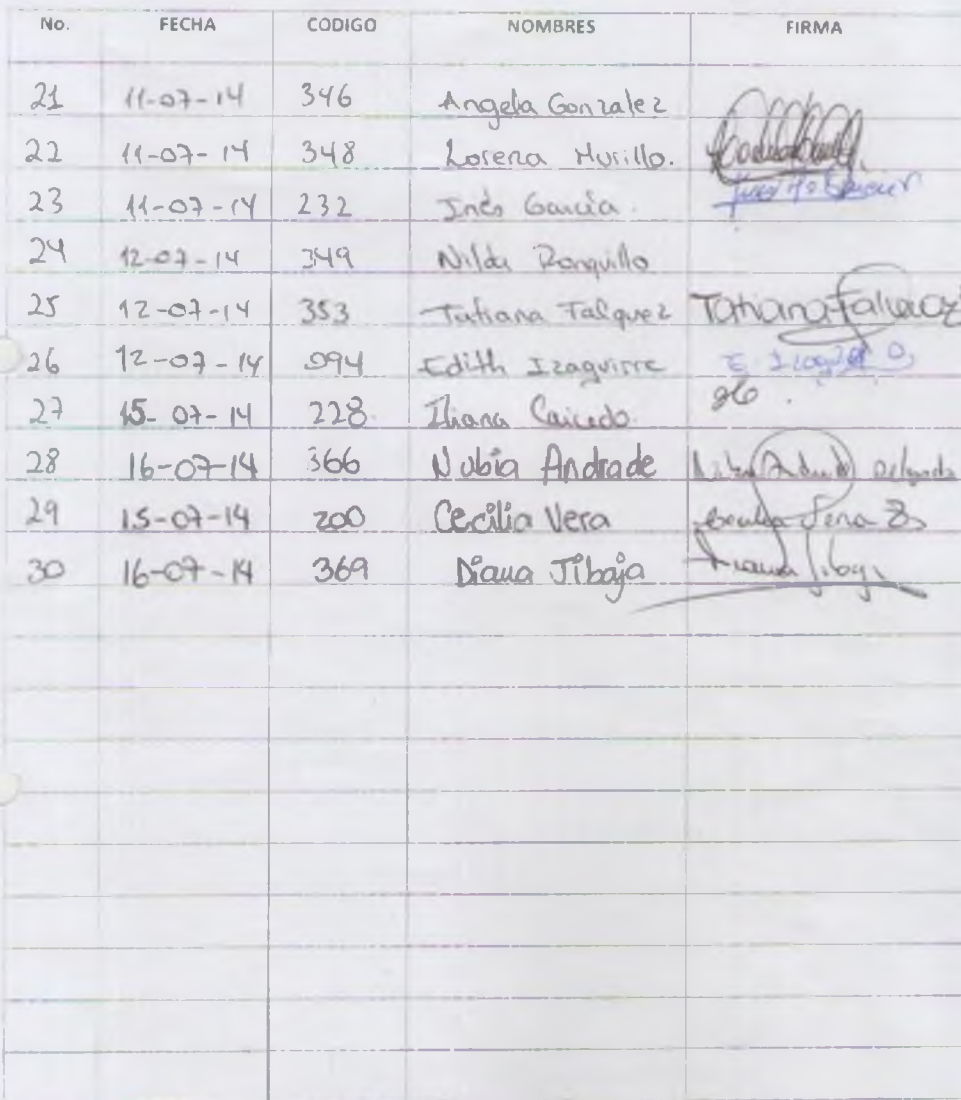 No. FECHA CODIGO NOMBRES FIRMA
21 11-07-14 346 Angela Gonzalez
22 11-07-14 348 Lorena Murillo.
23 11-07-14 232 Inés García.
24 12-07-14 349 Nilda Ronquillo
25 12-07-14 353 Tatiana Falquez Tatiana Falquez
26 12-07-14 094 Edith Izaguirre
27 15-07-14 228 Iliana Caicedo
28 16-07-14 366 Nubia Andrade
29 15-07-14 200 Cecilia Vera
30 16-07-14 369 Diana Jibaja Diana Jibaja